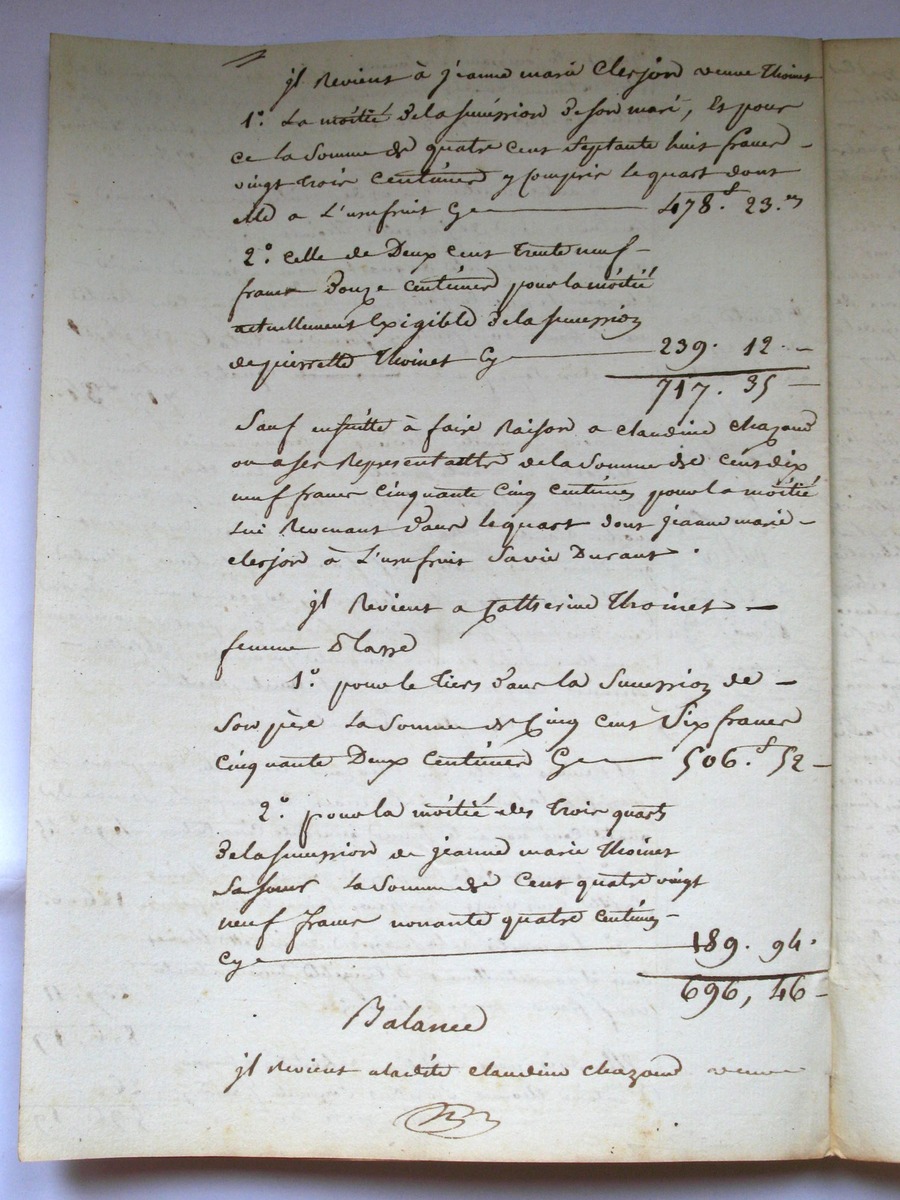 jl Revient à jeanne marie Clerjon veuve thoinet
1.° La moitié dela succession de son mari, Et pour
ce la Somme de quatre cent Septante huit francs –
vingt trois Centimes y Compris le quart dont
elle a L'usufruit Cy — 478.f 23.es
2.° Celle de Deux cent trente neuf –
francs Douze Centimes pour la môitié
actuellement Exigible dela succession
de pierrette thoinet Cy — 239. 12. –
717. 35 –
Sauf ensuitte à faire Raison a claudine Chazaud
ou a ses Representants de la Somme de Cent dix
neuf francs Cinquante Cinq Centimes pour la môitié
Lui Revenant dans le quart dont jeanne marie –
clerjon à L'usufruit Sa vie Durant .
jl Revient a Catherine Thoinet –
femme
1.° pour le tiers dans la Succession de –
Son père La Somme de Cinq cent Six francs
Cinquante Deux Centimes Cy — 506.f 52 –
2.° pour la môitié des trois quarts
dela succession de jeanne marie thoinet
Sa sœur La Somme de Cent quatre vingt
neuf francs nonante quatre Centimes –
Cy — 189. 94.
696, 46 –
Balance
jl Revient a la dite Claudine Chazaud veuve